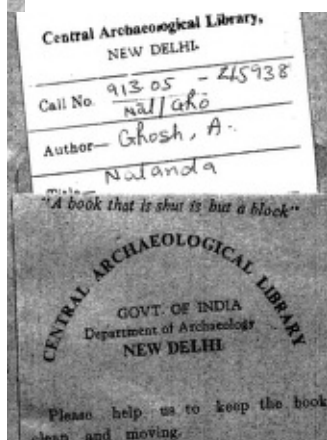 Central Archaeological Library,
NEW DELHI.
Call No. 913.05 - 245938
Nal/Gho
Author— Ghosh, A.
Title— Nalanda
"A book that is shut is but a block"
CENTRAL ARCHAEOLOGICAL LIBRARY
GOVT. OF INDIA
Department of Archaeology
NEW DELHI
Please help us to keep the book
clean and moving.